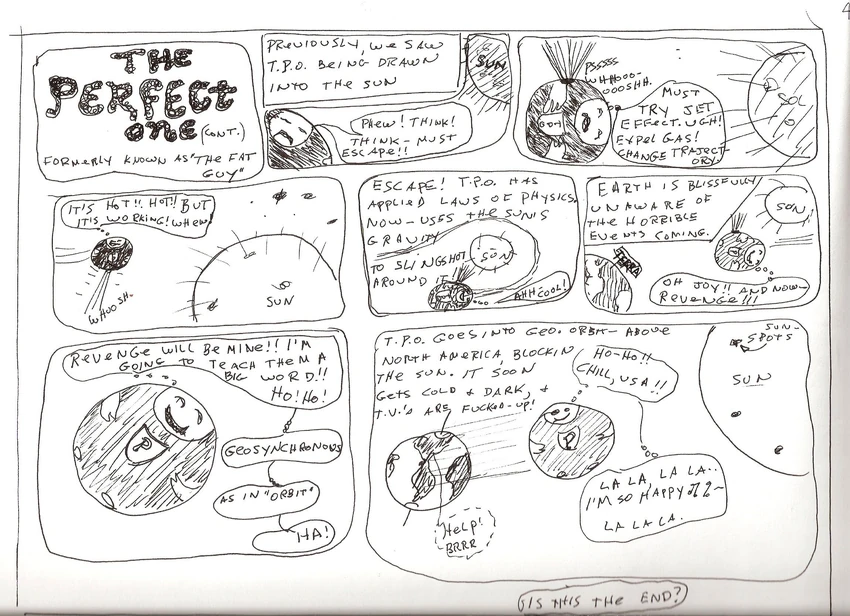 4
THE
PERFECT
ONE (CONT.)
FORMERLY KNOWN AS "THE FAT
GUY"
PREVIOUSLY, WE SAW
T.P.O. BEING DRAWN
INTO THE SUN
SUN
PHEW! THINK!
THINK - MUST
ESCAPE!!
PSSSSS
WHHOOO-
OOOSHH.
MUST
TRY JET
EFFECT. UGH!
EXPEL GAS!
CHANGE TRAJECT-
ORY.
SOL
IT'S HOT!! HOT!! BUT
IT'S WORKING! WHEW
WHOOSH.
SUN
ESCAPE! T.P.O. HAS
APPLIED LAWS OF PHYSICS.
NOW - USES THE SUN'S
GRAVITY
TO SLINGSHOT
AROUND IT
SUN
AHH COOL!
EARTH IS BLISSFULLY
UNAWARE OF
THE HORRIBLE
EVENTS COMING.
SUN
TERRA
OH JOY!! AND NOW-
REVENGE!!!
REVENGE WILL BE MINE!! I'M
GOING TO TEACH THEM A
BIG WORD!!
HO! HO!
P
GEOSYNCHRONOUS
AS IN "ORBIT"
HA!
T.P.O. GOES INTO GEO. ORBIT - ABOVE
NORTH AMERICA, BLOCKIN
THE SUN. IT SOON
GETS COLD & DARK, &
T.V.'S ARE FUCKED-UP!
HO-HO!!
CHILL, USA!!
SUN-
SPOTS
SUN
P
HELP!
BRRR
LA LA, LA LA..
I'M SO HAPPY
LA LA LA.
IS THIS THE END?